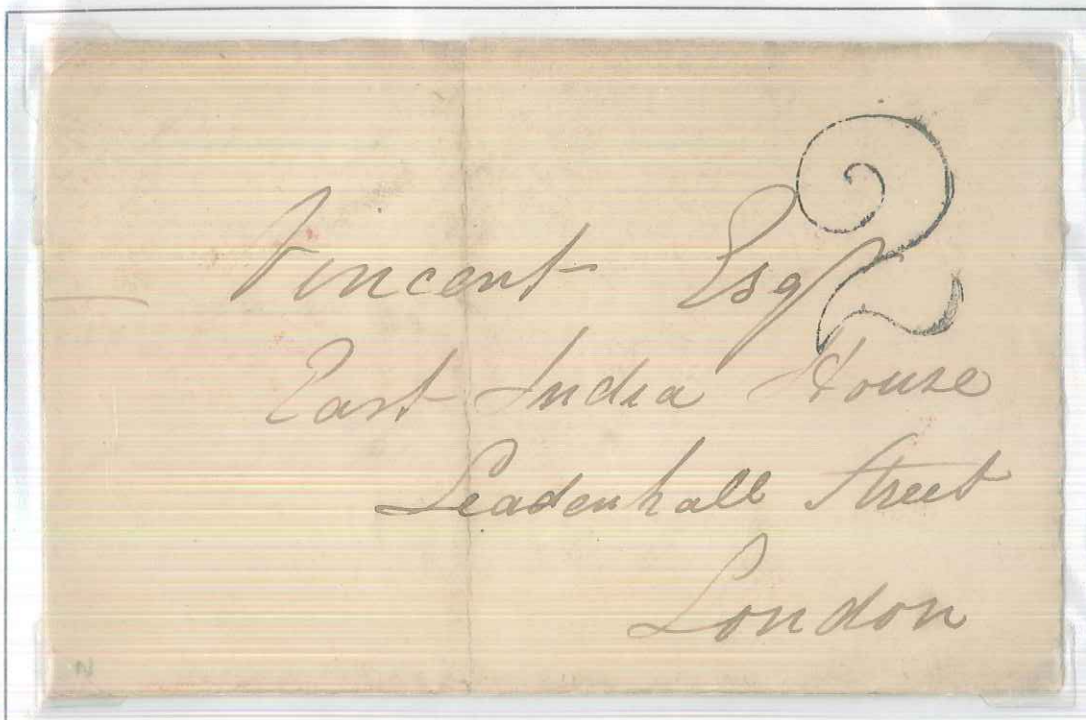 2
— Vincent Esq
East India House
Leadenhall Street
London